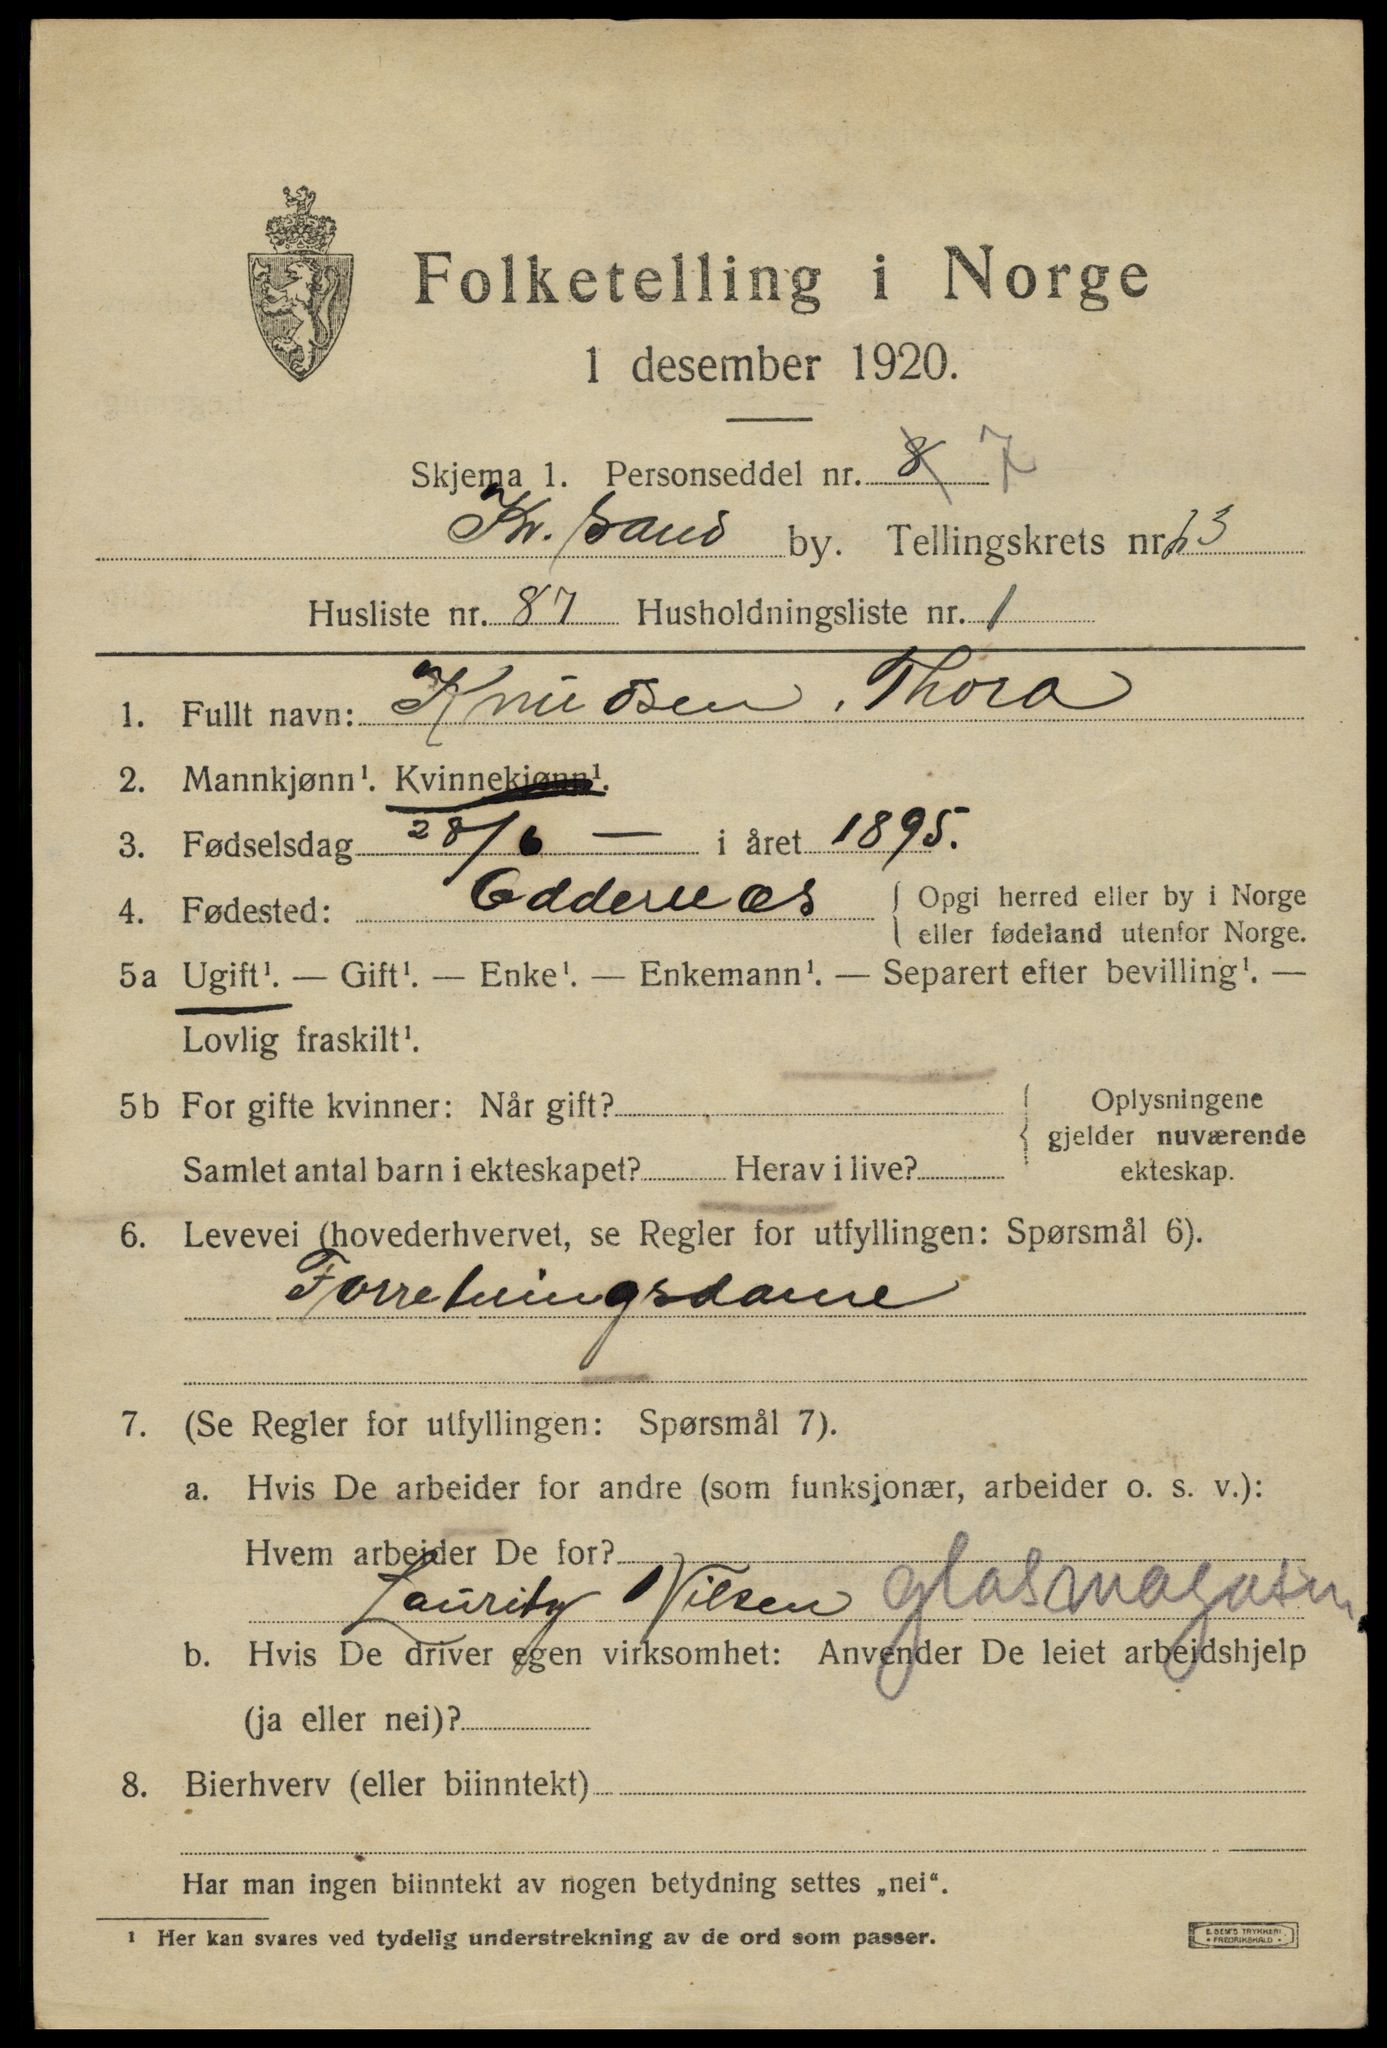 Folketelling i Norge
1 desember 1920.
Skjema 1. Personseddel nr. 8 7
Kr. sand by. Tellingskrets nr. 13
Husliste nr. 87 Husholdningsliste nr. 1
1. Fullt navn: Knudsen, Thora
2. Mannkjønn¹. Kvinnekjønn¹.
3. Fødselsdag 28/6 — i året 1895.
4. Fødested: Oddernes { Opgi herred eller by i Norge
eller fødeland utenfor Norge.
5a Ugift¹. — Gift¹. — Enke¹. — Enkemann¹. — Separert efter bevilling¹. —
Lovlig fraskilt¹.
5b For gifte kvinner: Når gift? { Oplysningene
gjelder nuværende
Samlet antal barn i ekteskapet? Herav i live? ekteskap.
6. Levevei (hovederhvervet, se Regler for utfyllingen: Spørsmål 6).
Forretningsdame
7. (Se Regler for utfyllingen: Spørsmål 7).
a. Hvis De arbeider for andre (som funksjonær, arbeider o. s. v.):
Hvem arbeider De for?
Lauritz Nilsen glasmagasin
b. Hvis De driver egen virksomhet: Anvender De leiet arbeidshjelp
(ja eller nei)?
8. Bierhverv (eller biinntekt)
Har man ingen biinntekt av nogen betydning settes „nei“.
¹ Her kan svares ved tydelig understrekning av de ord som passer.
E. SEM'S TRYKKERI
• FREDRIKSHALD •